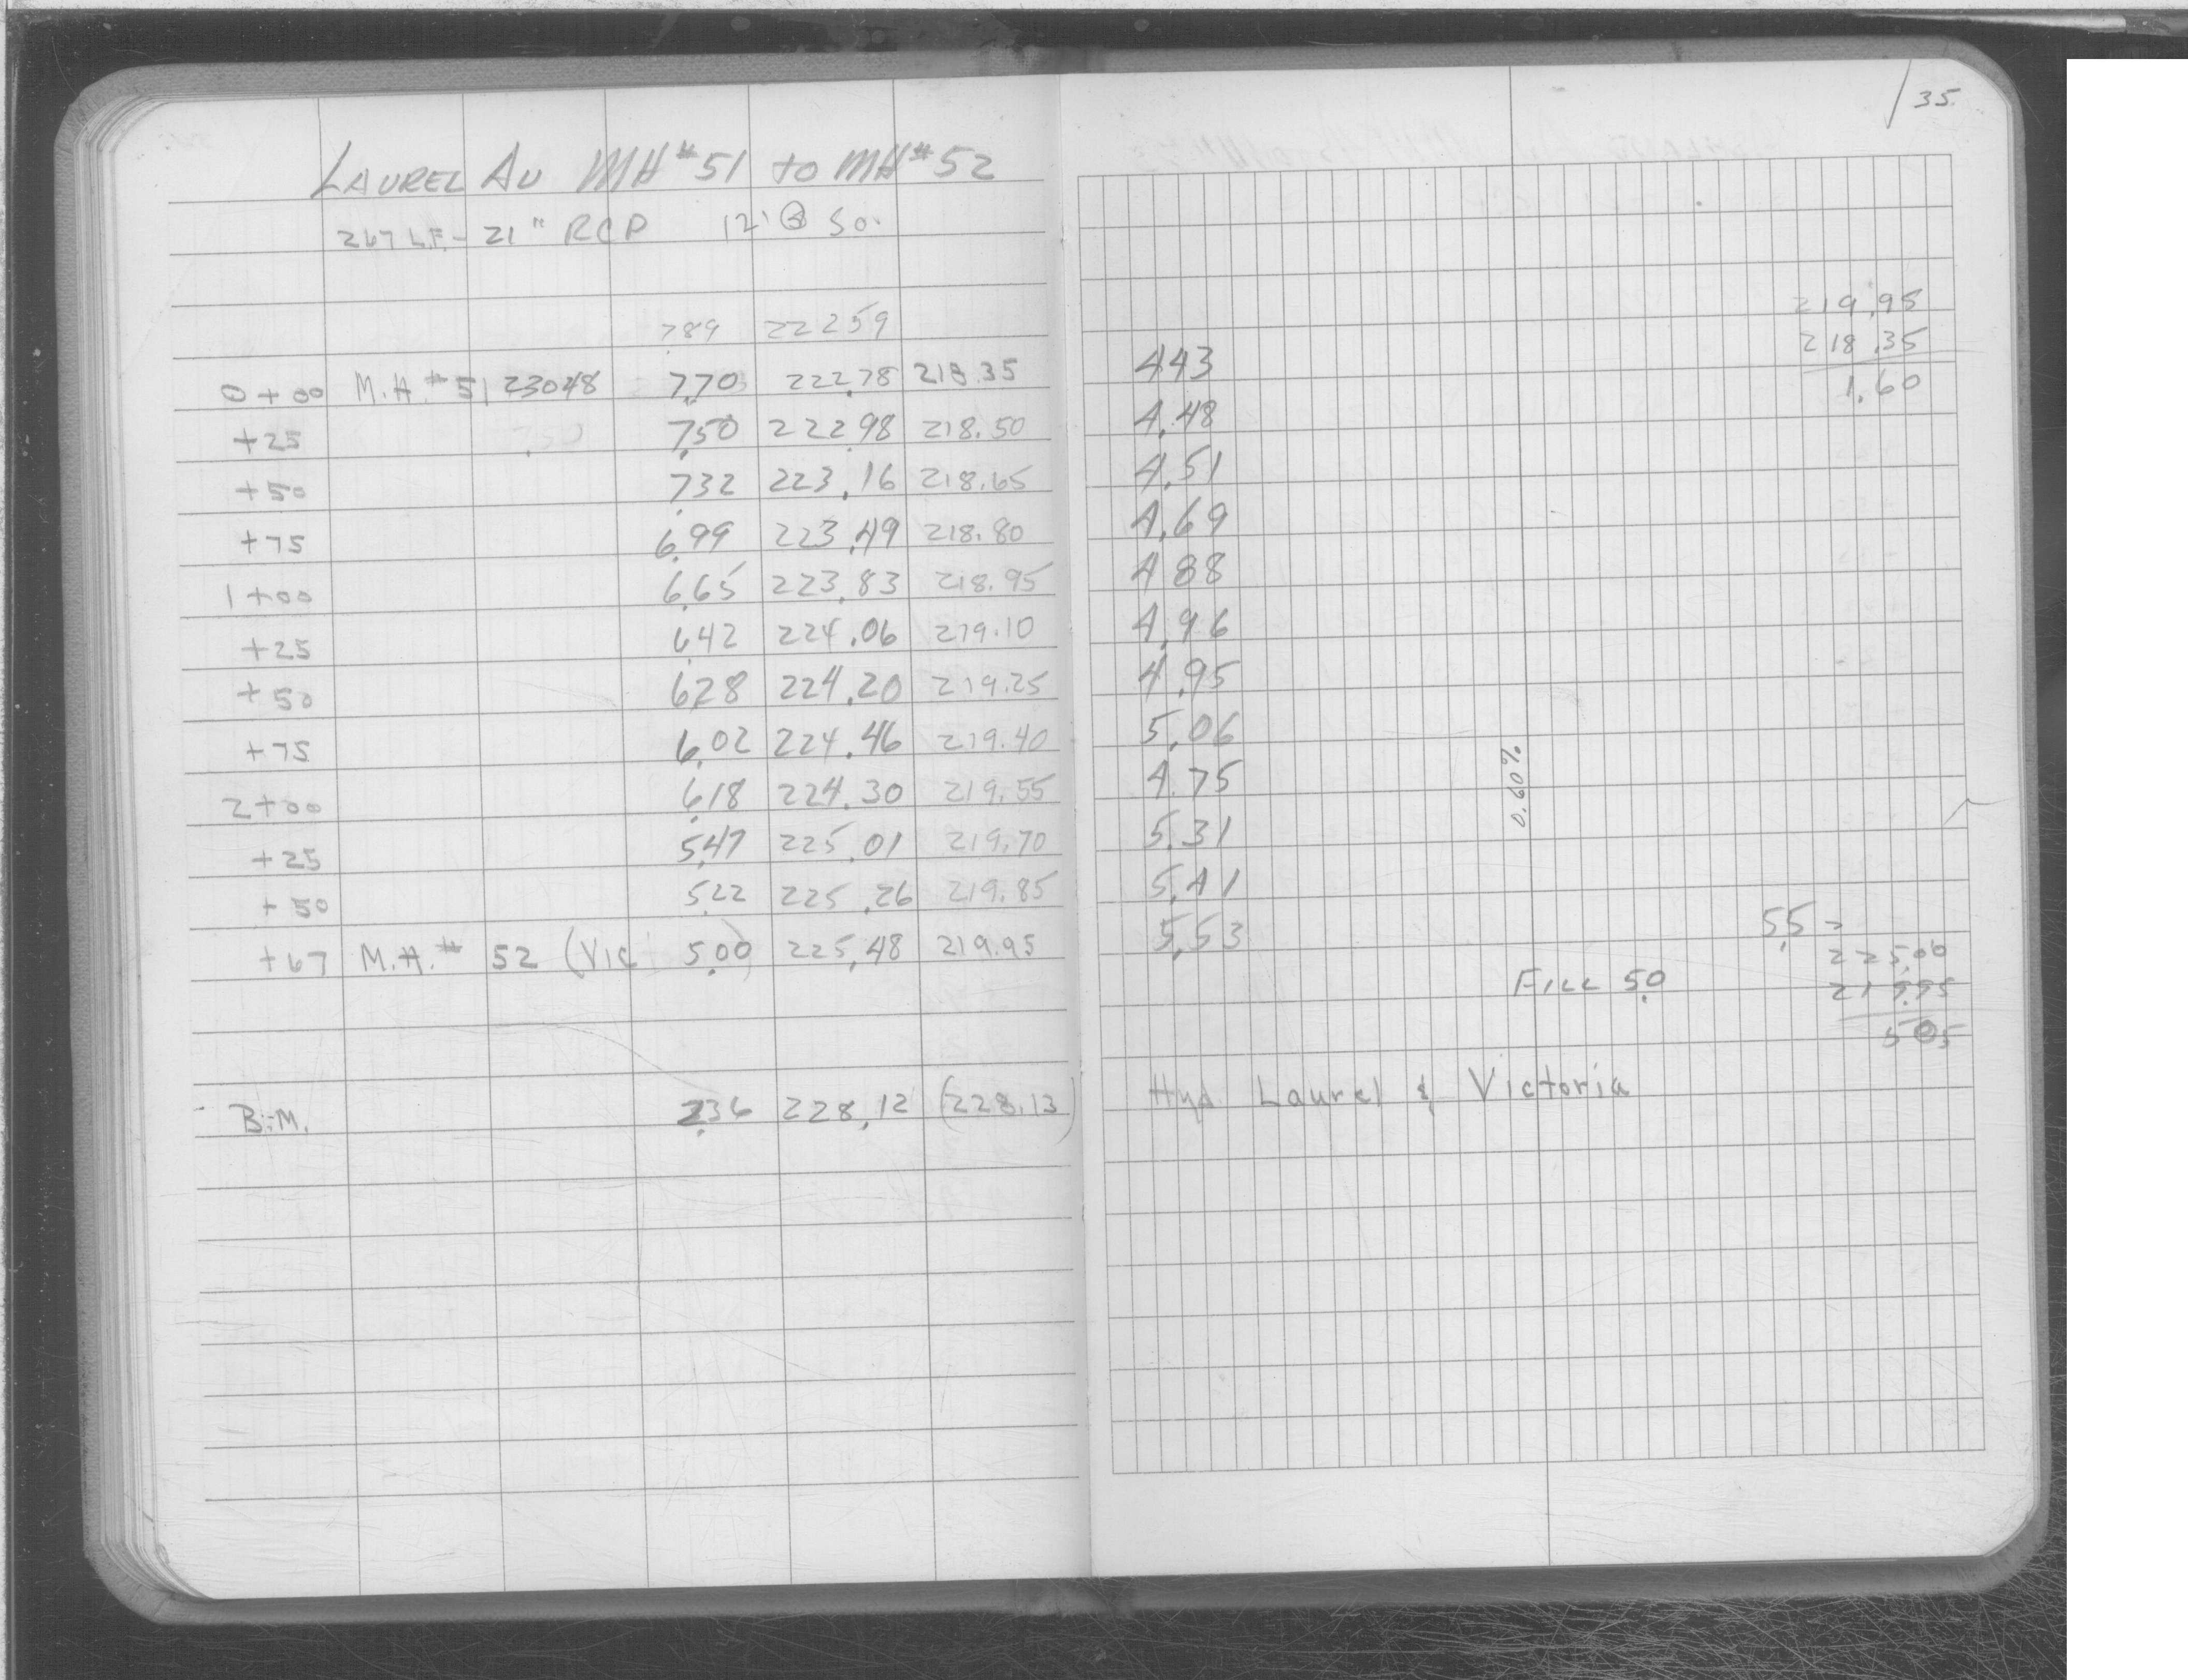 35
LAUREL AV MH#51 to MH#52
267 L.F. - 21" RCP 12' @ So.
789 22259
0+00 M.H.#51 23048 7.70 222.78 218.35 4.43
+25 7.50 222.98 218.50 4.48
+50 7.32 223.16 218.65 4.51
+75 6.99 223.49 218.80 4.69
1+00 6.65 223.83 218.95 4.88
+25 6.42 224.06 219.10 4.96
+50 6.28 224.20 219.25 4.95
+75 6.02 224.46 219.40 5.06
2+00 6.18 224.30 219.55 4.75
+25 5.47 225.01 219.70 5.31
+50 5.22 225.26 219.85 5.41
+67 M.H.# 52 (Vic) 5.00 225.48 219.95 5.53
B.M. 2.36 228.12 (228.13) Hyd Laurel & Victoria
219.95
218.35
1.60
0.60%
5.5 =
225.00
219.95
505
FILL 5.0